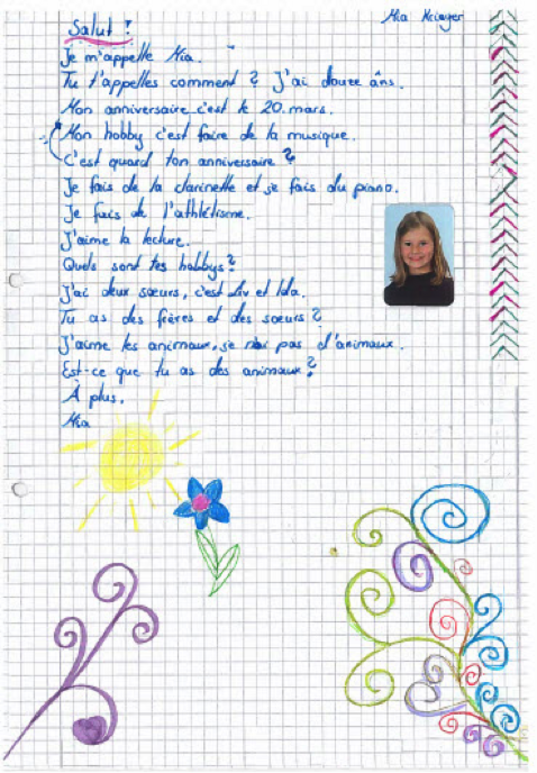 Mia Krieger
Salut !
Je m'appelle Mia.
Tu t'appelles comment ? J'ai douze âns.
Mon anniversaire c'est le 20. mars.
Mon hobby c'est faire de la musique.
C'est quand ton anniversaire ?
Je fais de la clarinette et je fais du piano.
Je fais de l'athlétisme.
J'aime la lecture.
Quels sont tes hobbys ?
J'ai deux sœurs, c'est Liv et Ida.
Tu as des frères et des soeurs ?
J'aime les animaux, je n'ai pas d'animaux.
Est-ce que tu as des animaux ?
À plus.
Mia